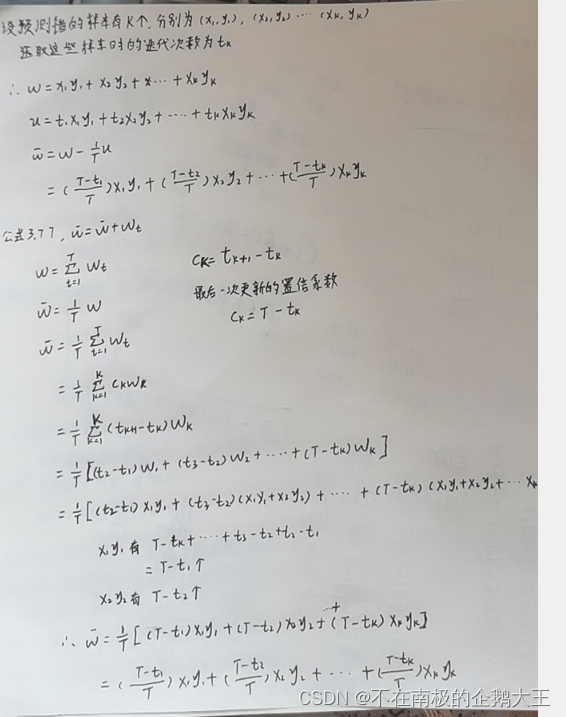 设预测错的样本有K个,分别为(x₁,y₁),(x₂,y₂)…(xₖ,yₖ)
选取这些样本时的迭代次数为tₖ
∴ w=x₁y₁+x₂y₂+x…+xₖyₖ
u=t₁x₁y₁+t₂x₂y₂+……+tₖxₖyₖ
w̄=w-1/T u
=(T-t₁/T)x₁y₁+(T-t₂/T)x₂y₂+…+(T-tₖ/T)xₖyₖ
公式3.77, w̄=w̄+wₜ
w=∑ₜ₌₁ᵀ wₜ
cₖ=tₖ₊₁-tₖ
最后一次更新的置信系数
w̄=1/T w
cₖ=T-tₖ
w̄=1/T ∑ₜ₌₁ᵀ wₜ
=1/T ∑ₖ₌₁ᴷ cₖwₖ
=1/T ∑ₖ₌₁ᴷ (tₖ₊₁-tₖ)wₖ
=1/T[(t₂-t₁)w₁+(t₃-t₂)w₂+……+(T-tₖ)wₖ]
=1/T[(t₂-t₁)x₁y₁+(t₃-t₂)(x₁y₁+x₂y₂)+……+(T-tₖ)(x₁y₁+x₂y₂+…xₖ
x₁y₁有 T-tₖ+……+t₃-t₂+t₂-t₁
=T-t₁个
x₂y₂有 T-t₂个
∴ w̄=1/T[(T-t₁)x₁y₁+(T-t₂)x₂y₂+…+(T-tₖ)xₖyₖ]
=(T-t₁/T)x₁y₁+(T-t₂/T)x₂y₂+…+(T-tₖ/T)xₖyₖ
CSDN @不在南极的企鹅大王